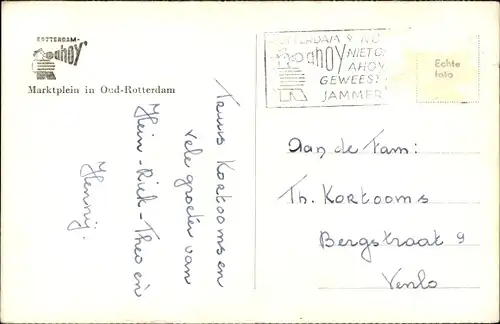 ROTTERDAM-
ahoy'
Marktplein in Oud-Rotterdam
Truus Kortooms en
vele groeten van
Hein-Riek-Theo en
Henny.
ROTTERDAM
ahoy
NIET
AHOY
GEWEEST
JAMMER
Echte
foto
Aan de Fam:
Th. Kortooms
Bergstraat 9
Venlo